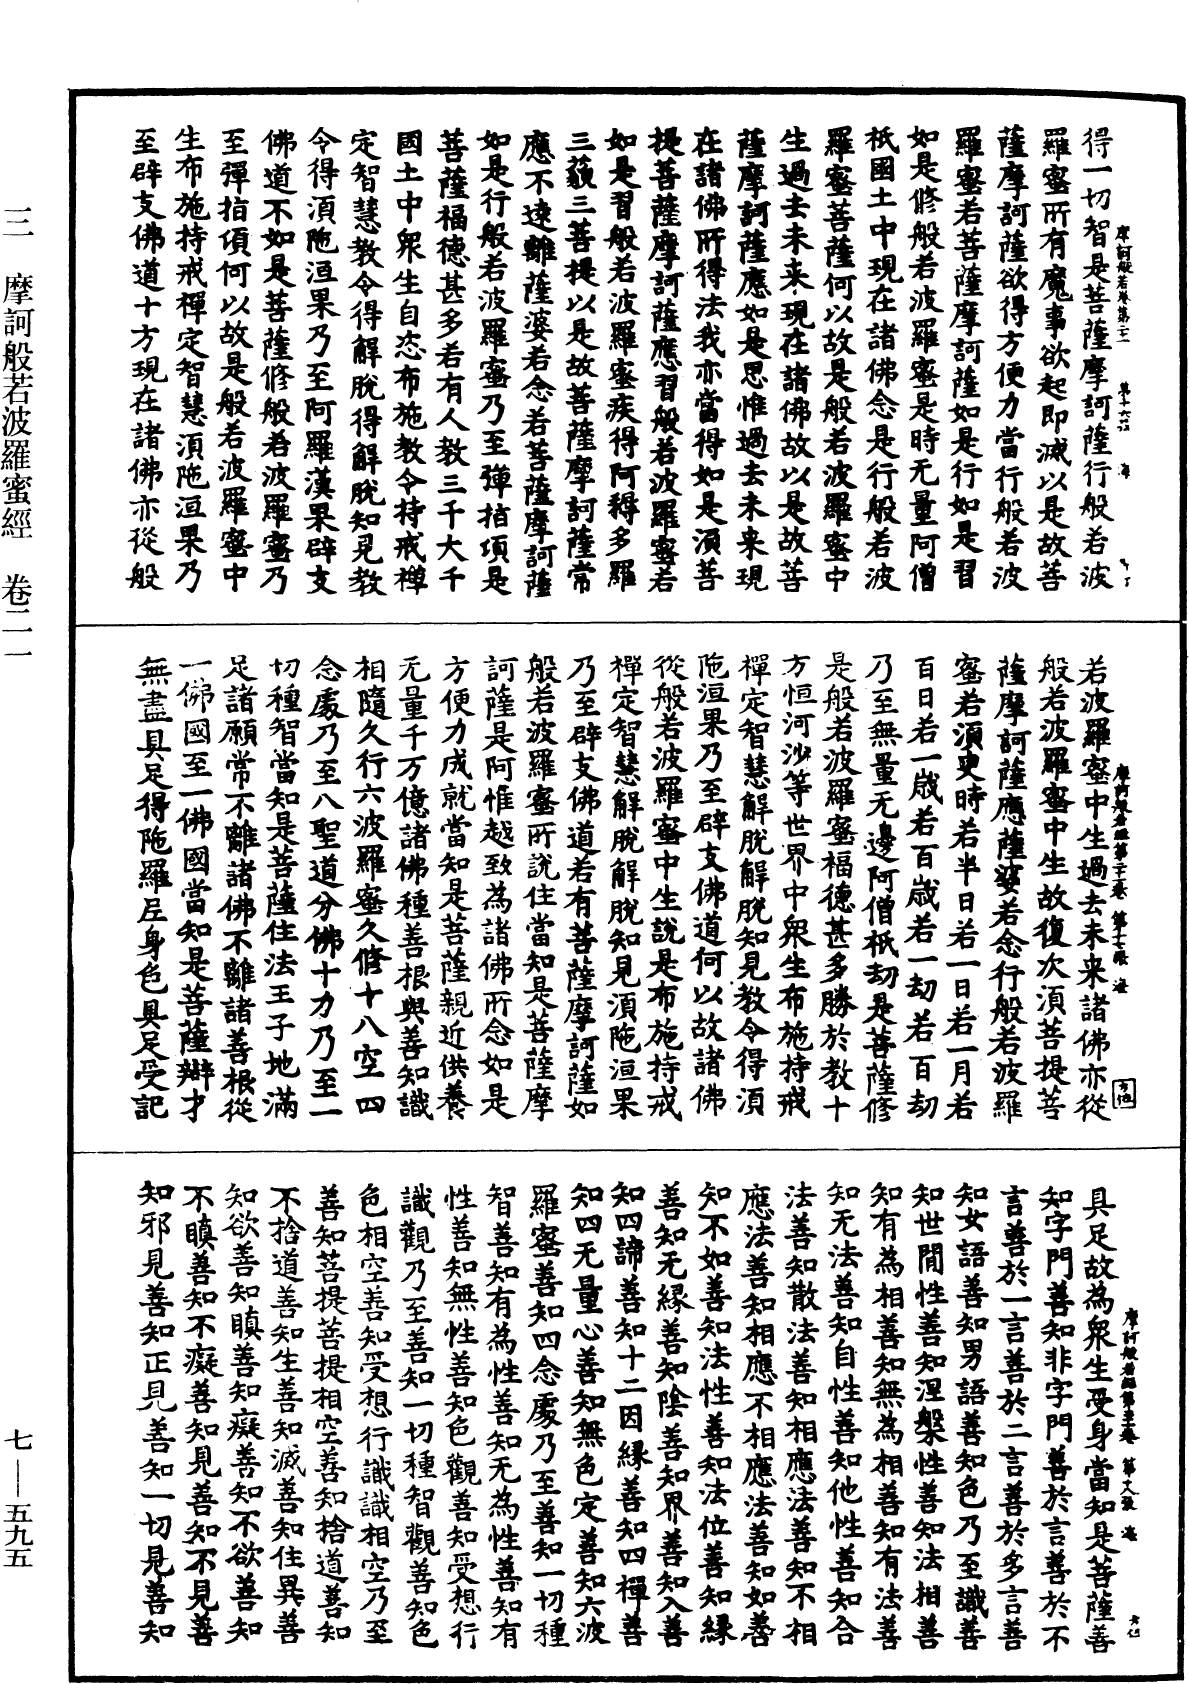 得一切智是菩薩摩訶薩行般若波
羅蜜所有魔事欲起即滅以是故菩
薩摩訶薩欲得方便力當行般若波
羅蜜若菩薩摩訶薩如是行如是習
如是修般若波羅蜜是時无量阿僧
祇國土中現在諸佛念是行般若波
羅蜜菩薩何以故是般若波羅蜜中
生過去未来現在諸佛故以是故菩
薩摩訶薩應如是思惟過去未来現
在諸佛所得法我亦當得如是湏菩
提菩薩摩訶薩應習般若波羅蜜若
如是習般若波羅蜜疾得阿耨多羅
三藐三菩提以是故菩薩摩訶薩常
應不遠離薩婆若念若菩薩摩訶薩
如是行般若波羅蜜乃至彈指頃是
菩薩福德甚多若有人教三千大千
國土中衆生自恣布施教令持戒禪
定智慧教令得解脫得解脫知見教
令得湏陁洹果乃至阿羅漢果辟支
佛道不如是菩薩修般若波羅蜜乃
至彈指頃何以故是般若波羅蜜中
生布施持戒禪定智慧湏陁洹果乃
至辟支佛道十方現在諸佛亦從般
若波羅蜜中生過去未来諸佛亦從
般若波羅蜜中生故復次湏菩提菩
薩摩訶薩應薩婆若念行般若波羅
蜜若湏臾時若半日若一日若一月若
百日若一歲若百歲若一劫若百劫
乃至無量无邊阿僧祇劫是菩薩修
是般若波羅蜜福德甚多勝於教十
方恒河沙等世界中衆生布施持戒
禪定智慧解脫解脫知見教令得湏
陁洹果乃至辟支佛道何以故諸佛
從般若波羅蜜中生說是布施持戒
禪定智慧解脫解脫知見湏陁洹果
乃至辟支佛道若有菩薩摩訶薩如
般若波羅蜜所說住當知是菩薩摩
訶薩是阿惟越致為諸佛所念如是
方便力成就當知是菩薩親近供養
无量千万億諸佛種善根與善知識
相隨久行六波羅蜜久修十八空四
念處乃至八聖道分佛十力乃至一
切種智當知是菩薩住法王子地滿
足諸願常不離諸佛不離諸善根從
一佛國至一佛國當知是菩薩辯才
無盡具足得陁羅尼身色具足受記
具足故為衆生受身當知是菩薩善
知字門善知非字門善於言善於不
言善於一言善於二言善於多言善
知女語善知男語善知色乃至識善
知世間性善知涅槃性善知法相善
知有為相善知無為相善知有法善
知无法善知自性善知他性善知合
法善知散法善知相應法善知不相
應法善知相應不相應法善知如善
知不如善知法性善知法位善知緣
善知无緣善知陰善知界善知入善
知四諦善知十二因緣善知四禪善
知四无量心善知無色定善知六波
羅蜜善知四念處乃至善知一切種
智善知有為性善知无為性善知有
性善知無性善知色觀善知受想行
識觀乃至善知一切種智觀善知色
色相空善知受想行識識相空乃至
善知菩提菩提相空善知捨道善知
不捨道善知生善知滅善知住異善
知欲善知瞋善知癡善知不欲善知
不瞋善知不癡善知見善知不見善
知邪見善知正見善知一切見善知
三 摩訶般若波羅蜜經 卷二一
七—五九五